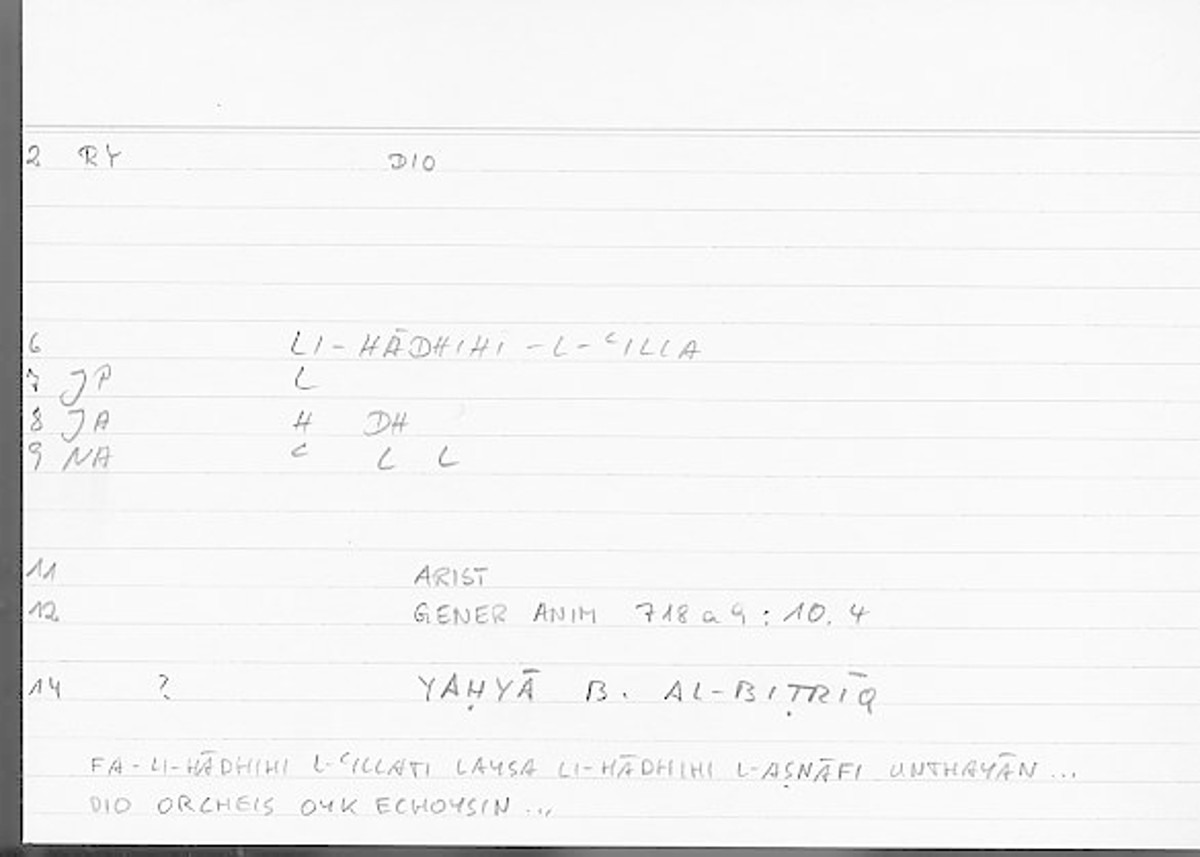 2 RY DIO
6 LI-HĀDHIHI-L-ʿILLA
7 JP L
8 JA H DH
9 NA ʿ L L
11 ARIST
12 GENER ANIM 718a9:10.4
14 ? YAḤYĀ B. AL-BIṬRĪQ
FA-LI-HĀDHIHI L-ʿILLATI LAYSA LI-HĀDHIHI L-AṢNĀFI UNTHAYĀN...
DIO ORCHEIS OYK ECHOYSIN...